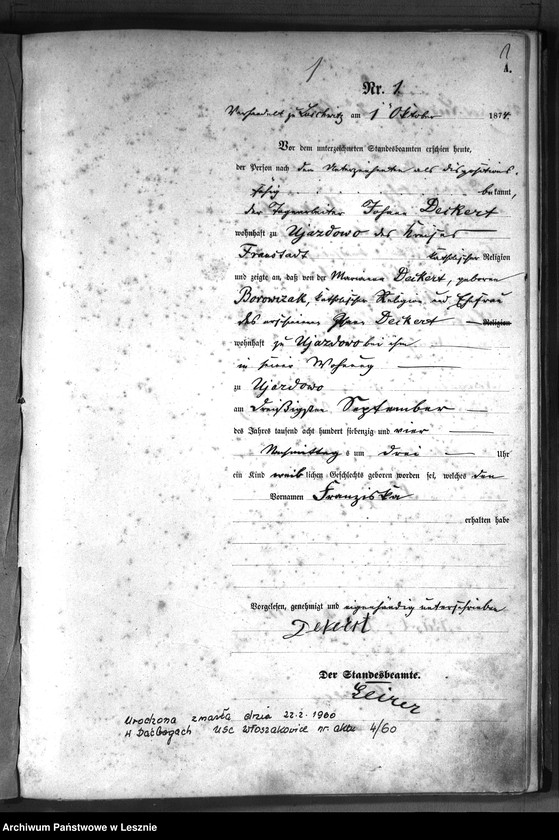 1
A.
Nr. 1
Verhandelt zu Laschwitz am 1 Oktober 1874.
Vor dem unterzeichneten Standesbeamten erschien heute,
der Person nach den Unterzeichneten als dispositions-
fähig bekannt,
der Tagearbeiter Johann Deikert
wohnhaft zu Ujazdowo des Kreises
Fraustadt katholischer Religion
und zeigte an, daß von der Marianna Deikert, geboren
Borowizak, katholischer Religion und Ehefrau
des Deikert Religion
wohnhaft zu Ujazdowo bei ihm
in seiner Wohnung
zu Ujazdowo
am dreißigsten September
des Jahres tausend acht hundert siebenzig und vier
Nachmittag s um drei Uhr
ein Kind weiblichen Geschlechts geboren worden sei, welches den
Vornamen Franziska
erhalten habe
Vorgelesen, genehmigt und eigenhändig unterschrieben
Dekert
Der Standesbeamte.
Urodzona zmarła dnia 22.2.1960
USC Włoszakowice nr aktu 4/60
Archiwum Państwowe w Lesznie